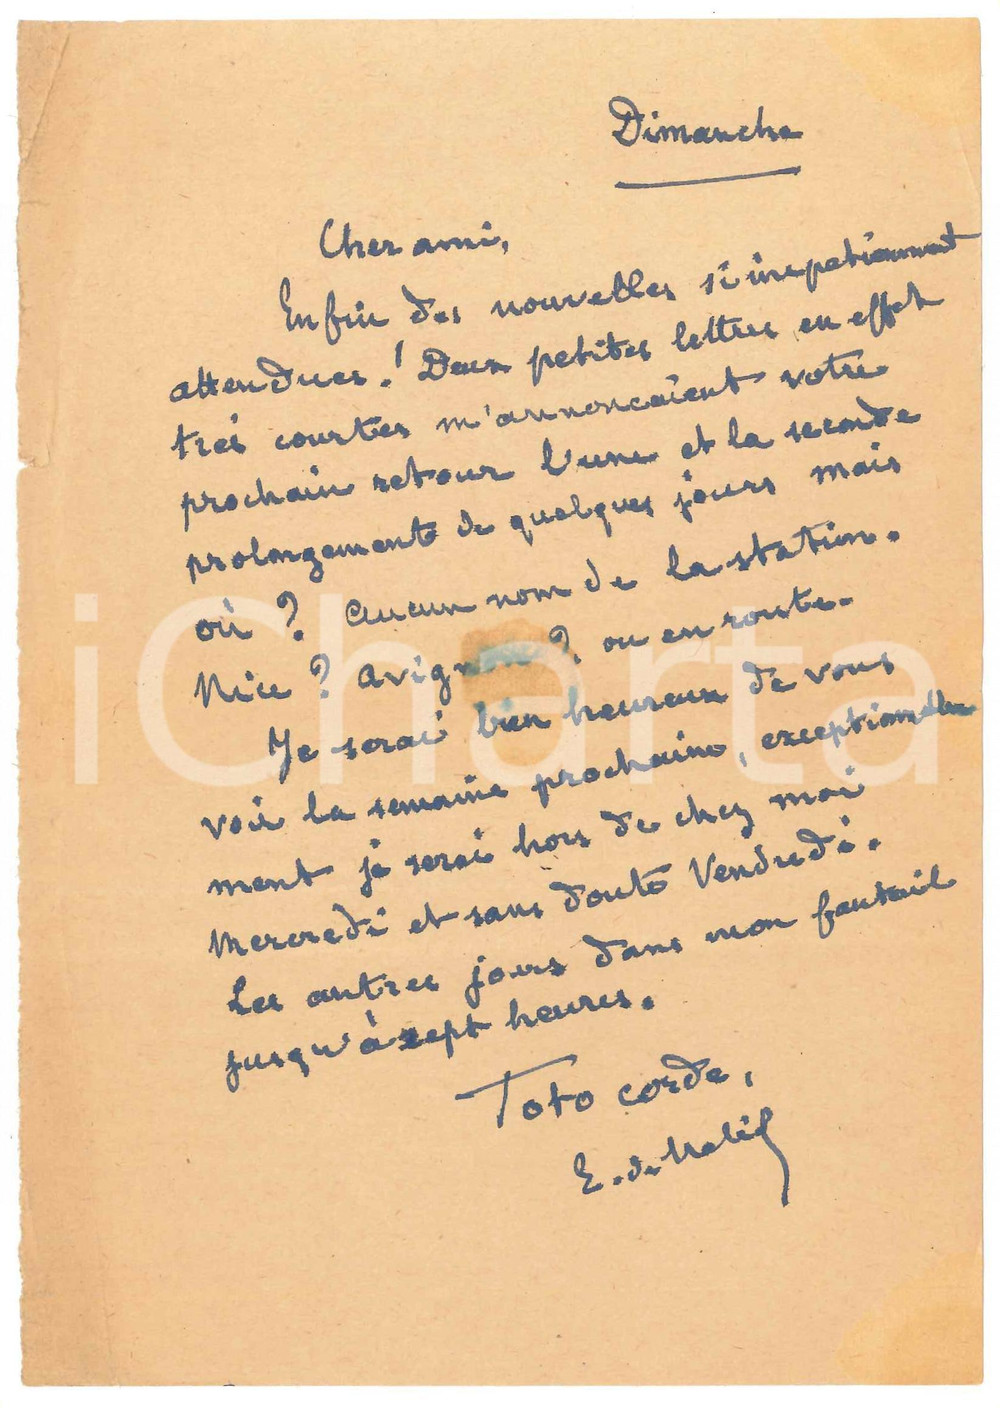 Dimanche
Cher ami,
Enfin des nouvelles si impatiemment
attendues! Deux petites lettres en effet
très courtes m'annoncaient votre
prochain retour l'une et la seconde
prolongement de quelques jours mais
où ? Aucun nom de la station.
Nice ? Avignon ? ou en route.
Je serai bien heureux de vous
voir la semaine prochaine, exceptionnelle
ment je serai hors de chez moi
Mercredi et sans doute Vendredi.
Les autres jours dans mon fauteuil
jusqu'à sept heures.
Toto corde,
E. de
iCharta